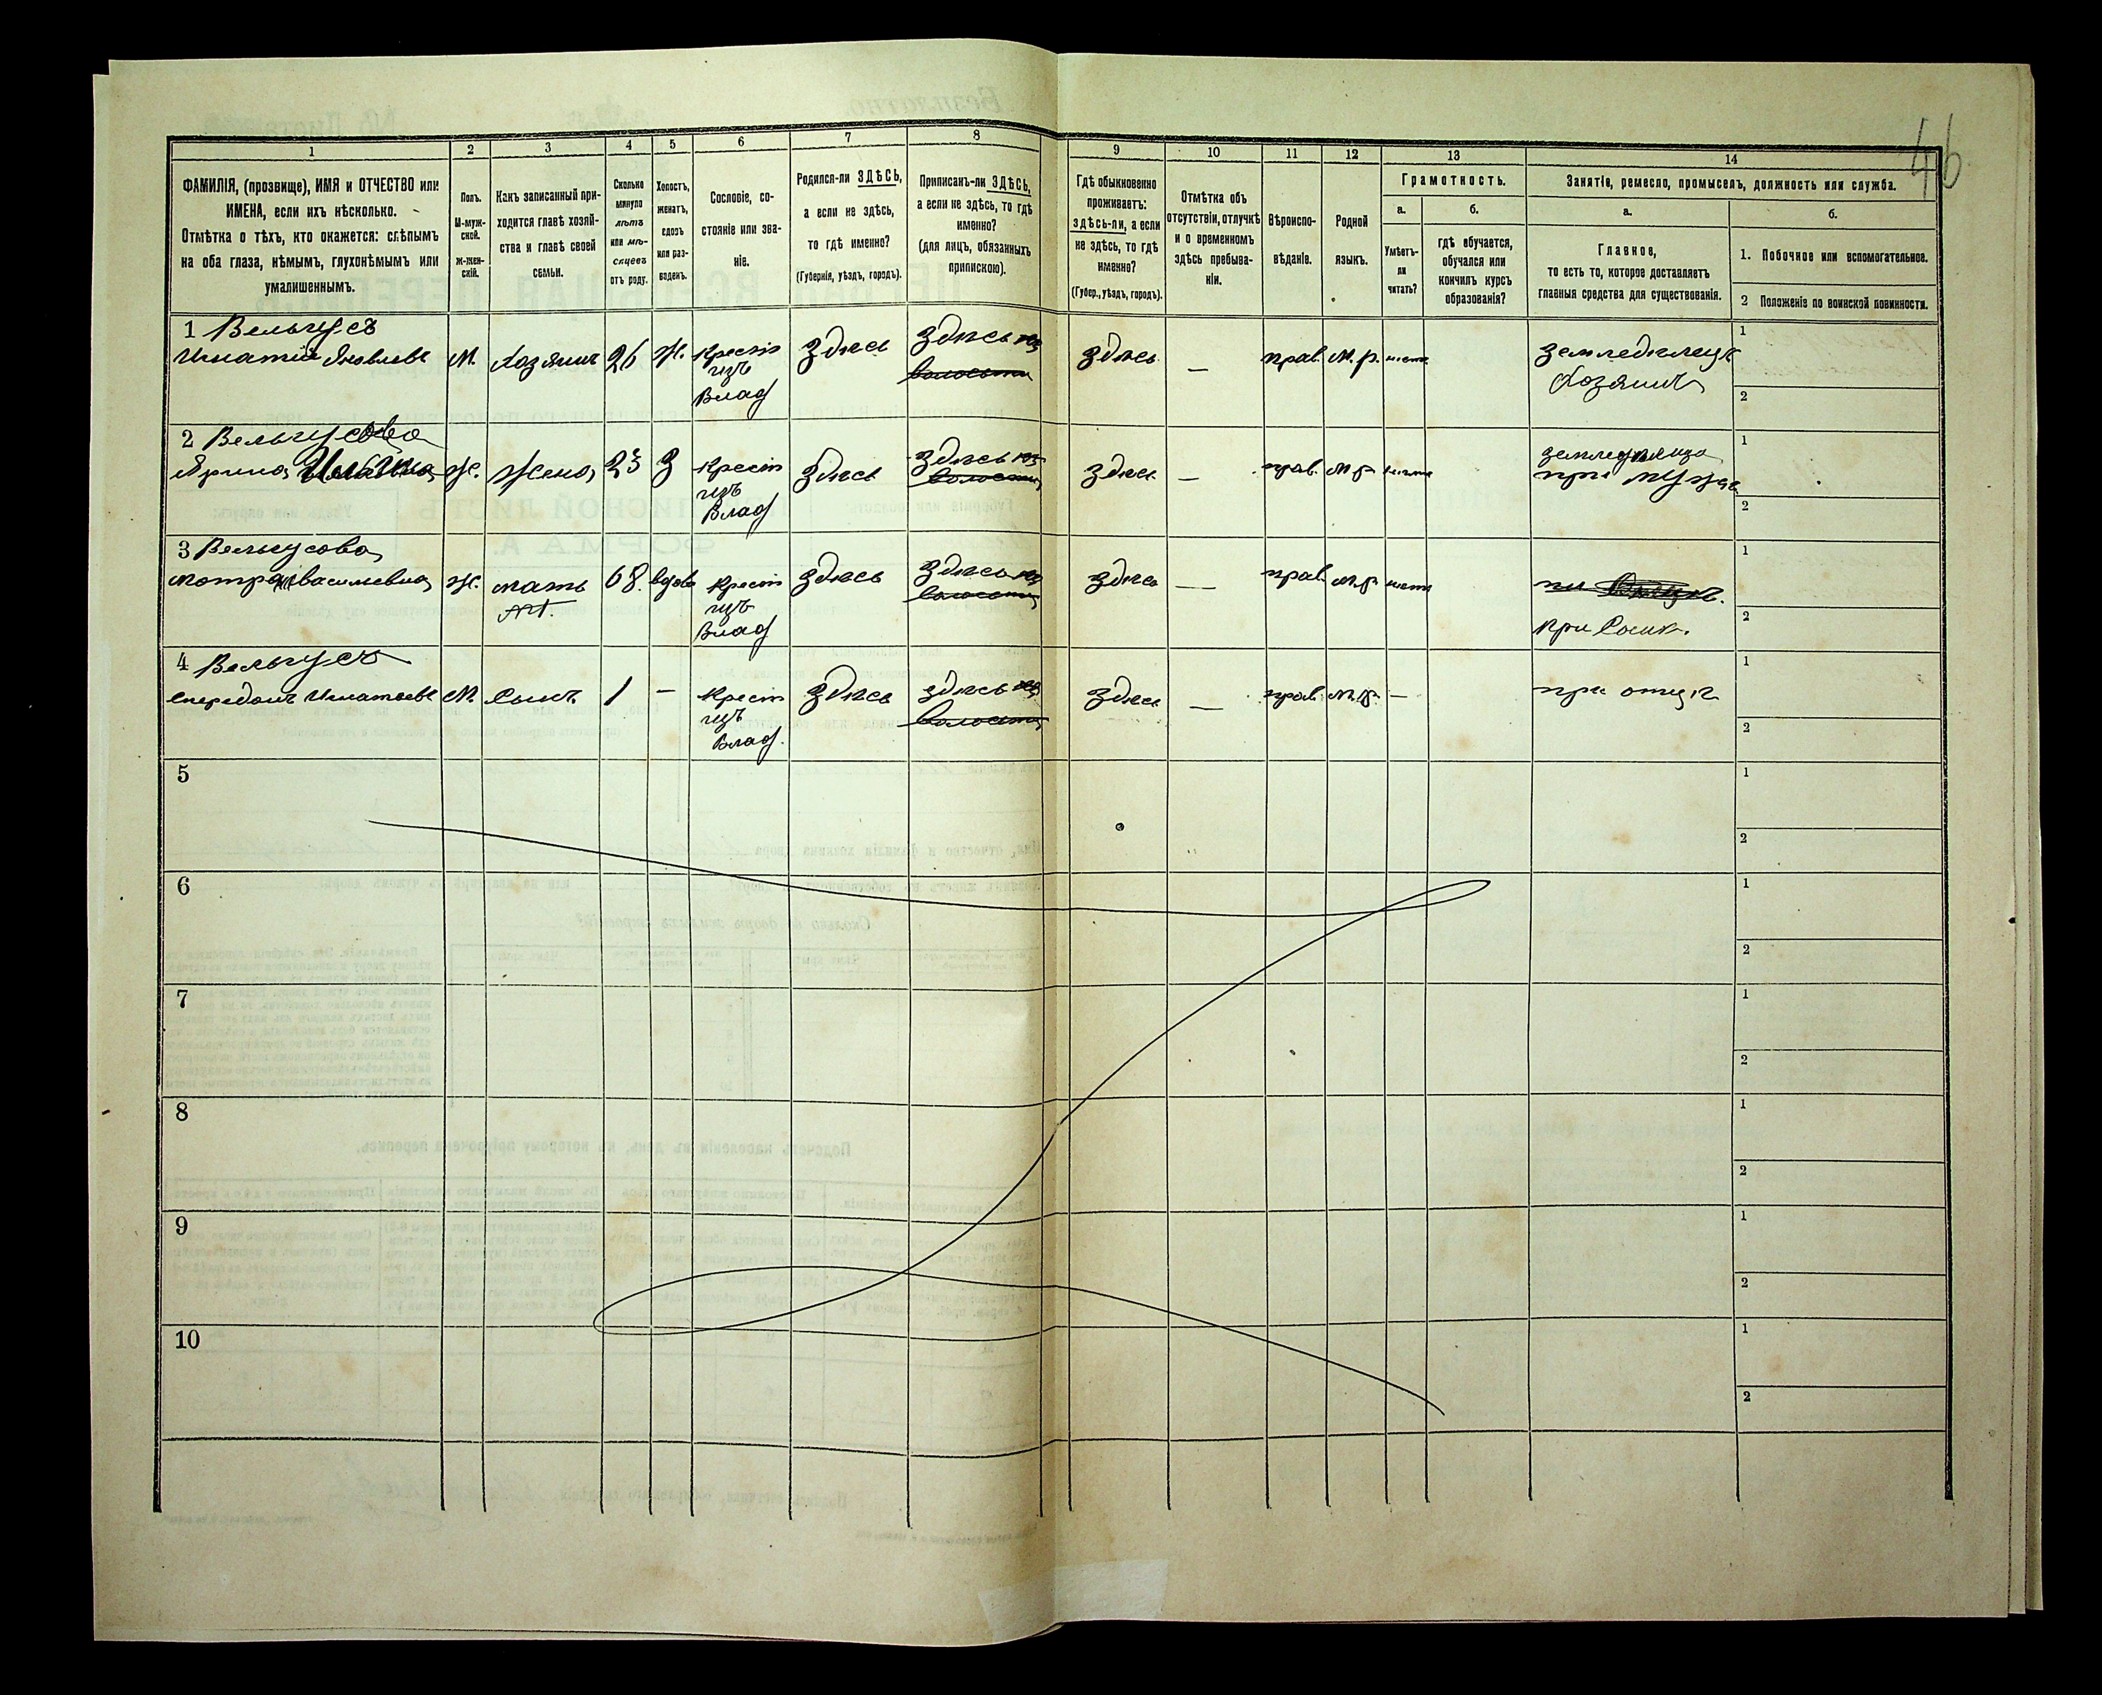 46
1 2 3 4 5 6 7 8 9 10 11 12 13 14
ФАМИЛІЯ, (прозвище), ИМЯ и ОТЧЕСТВО или
ИМЕНА, если ихъ нѣсколько.
Отмѣтка о тѣхъ, кто окажется: слѣпымъ
на оба глаза, нѣмымъ, глухонѣмымъ или
умалишеннымъ.
Полъ.
М-муж-
ской.
Ж-жен-
скій.
Какъ записанный при-
ходится главѣ хозяй-
ства и главѣ своей
семьи.
Сколько
минуло
лѣтъ
или мѣ-
сяцевъ
отъ роду.
Холостъ,
женатъ,
вдовъ
или раз-
веденъ.
Сословіе, со-
стояніе или зва-
ніе.
Родился-ли ЗДѢСЬ,
а если не здѣсь,
то гдѣ именно?
(Губернія, уѣздъ, городъ).
Приписанъ-ли ЗДѢСЬ,
а если не здѣсь, то гдѣ
именно?
(для лицъ, обязанныхъ
припискою).
Гдѣ обыкновенно
проживаетъ:
здѣсь-ли, а если
не здѣсь, то гдѣ
именно?
(Губер., уѣздъ, городъ).
Отмѣтка объ
отсутствіи, отлучкѣ
и о временномъ
здѣсь пребыва-
ніи.
Вѣроиспо-
вѣданіе.
Родной
языкъ.
Грамотность.
а.
Умѣетъ-
ли
читать?
б.
гдѣ обучается,
обучался или
кончилъ курсъ
образованія?
Занятіе, ремесло, промыселъ, должность или служба.
а.
Главное,
то есть то, которое доставляетъ
главныя средства для существованія.
б.
1. Побочное или вспомогательное.
2 Положеніе по воинской повинности.
1 Вельгусъ
Игнатій Яковлевъ М. Хозяинъ 26 Ж. Крест здѣсь здѣсь здѣсь — прав. М. р. земледѣлецъ 1
изъ волости Хозяинъ
Влад 2
2 Вельгусова
Ярина Ж. Жена 23 З Крест здѣсь здѣсь здѣсь — прав. М. р. 1
изъ волости при мужѣ
Влад 2
3 Вельгусова
Мотра Василевна Ж. мать 68. вдова Крест здѣсь здѣсь здѣсь — прав. М. р. 1
изъ волости
Влад при Сынѣ. 2
4 Вельгусъ
Спередонъ Игнатьевъ М. Сынъ. 1 — Крест здѣсь здѣсь здѣсь — прав. М. р. — при отцѣ 1
изъ волости
Влад. 2
5 1
2
6 1
2
7 1
2
8 1
2
9 1
2
10 1
2